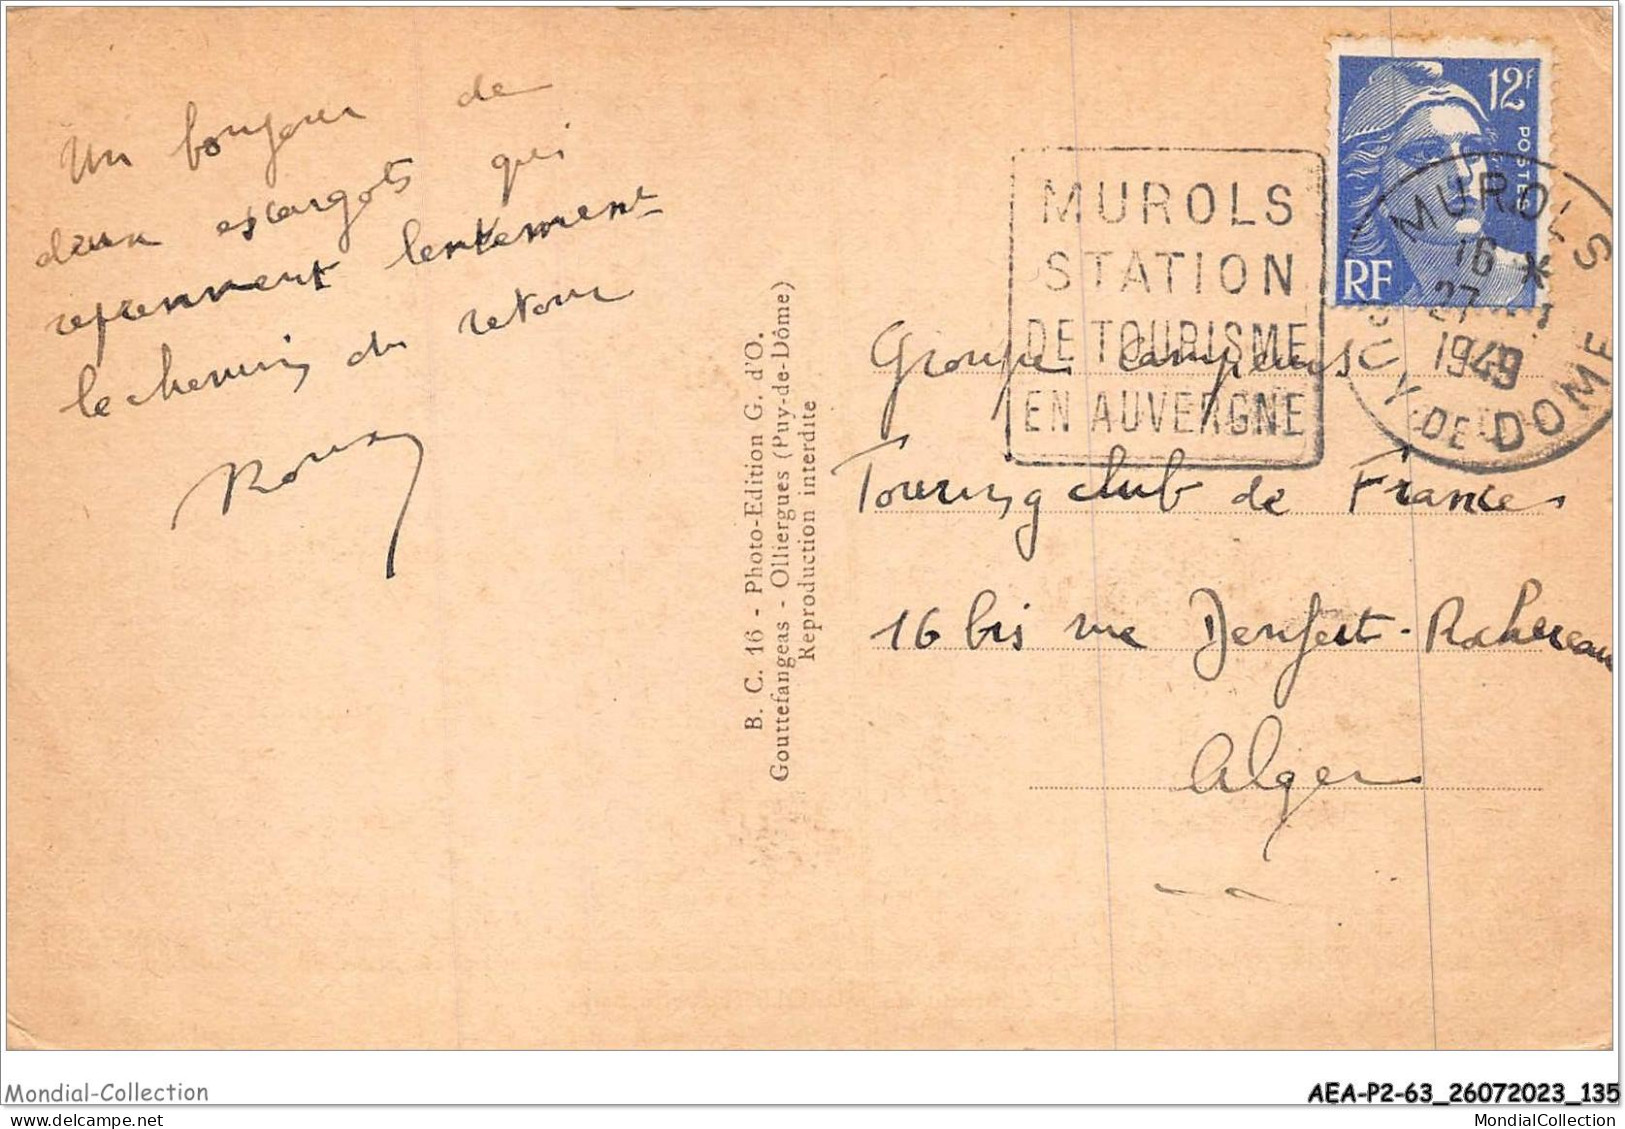 Un bonjour de
deux escargots qui
reprennent lentement
le chemin du retour
B. C. 16 - Photo-Edition G. d'O.
Gouttefangeas - Olliergues (Puy-de-Dôme)
Reproduction interdite
12F
POSTES
RF
MUROLS
STATION
DE TOURISME
EN AUVERGNE
MUROLS
16 *
27
1949
PUY-DE-DOME
Groupe Campeurs
Touring club de France
16 bis rue Denfert-Rochereau
Alger
Mondial-Collection
AEA-P2-63_26072023_135
MondialCollection